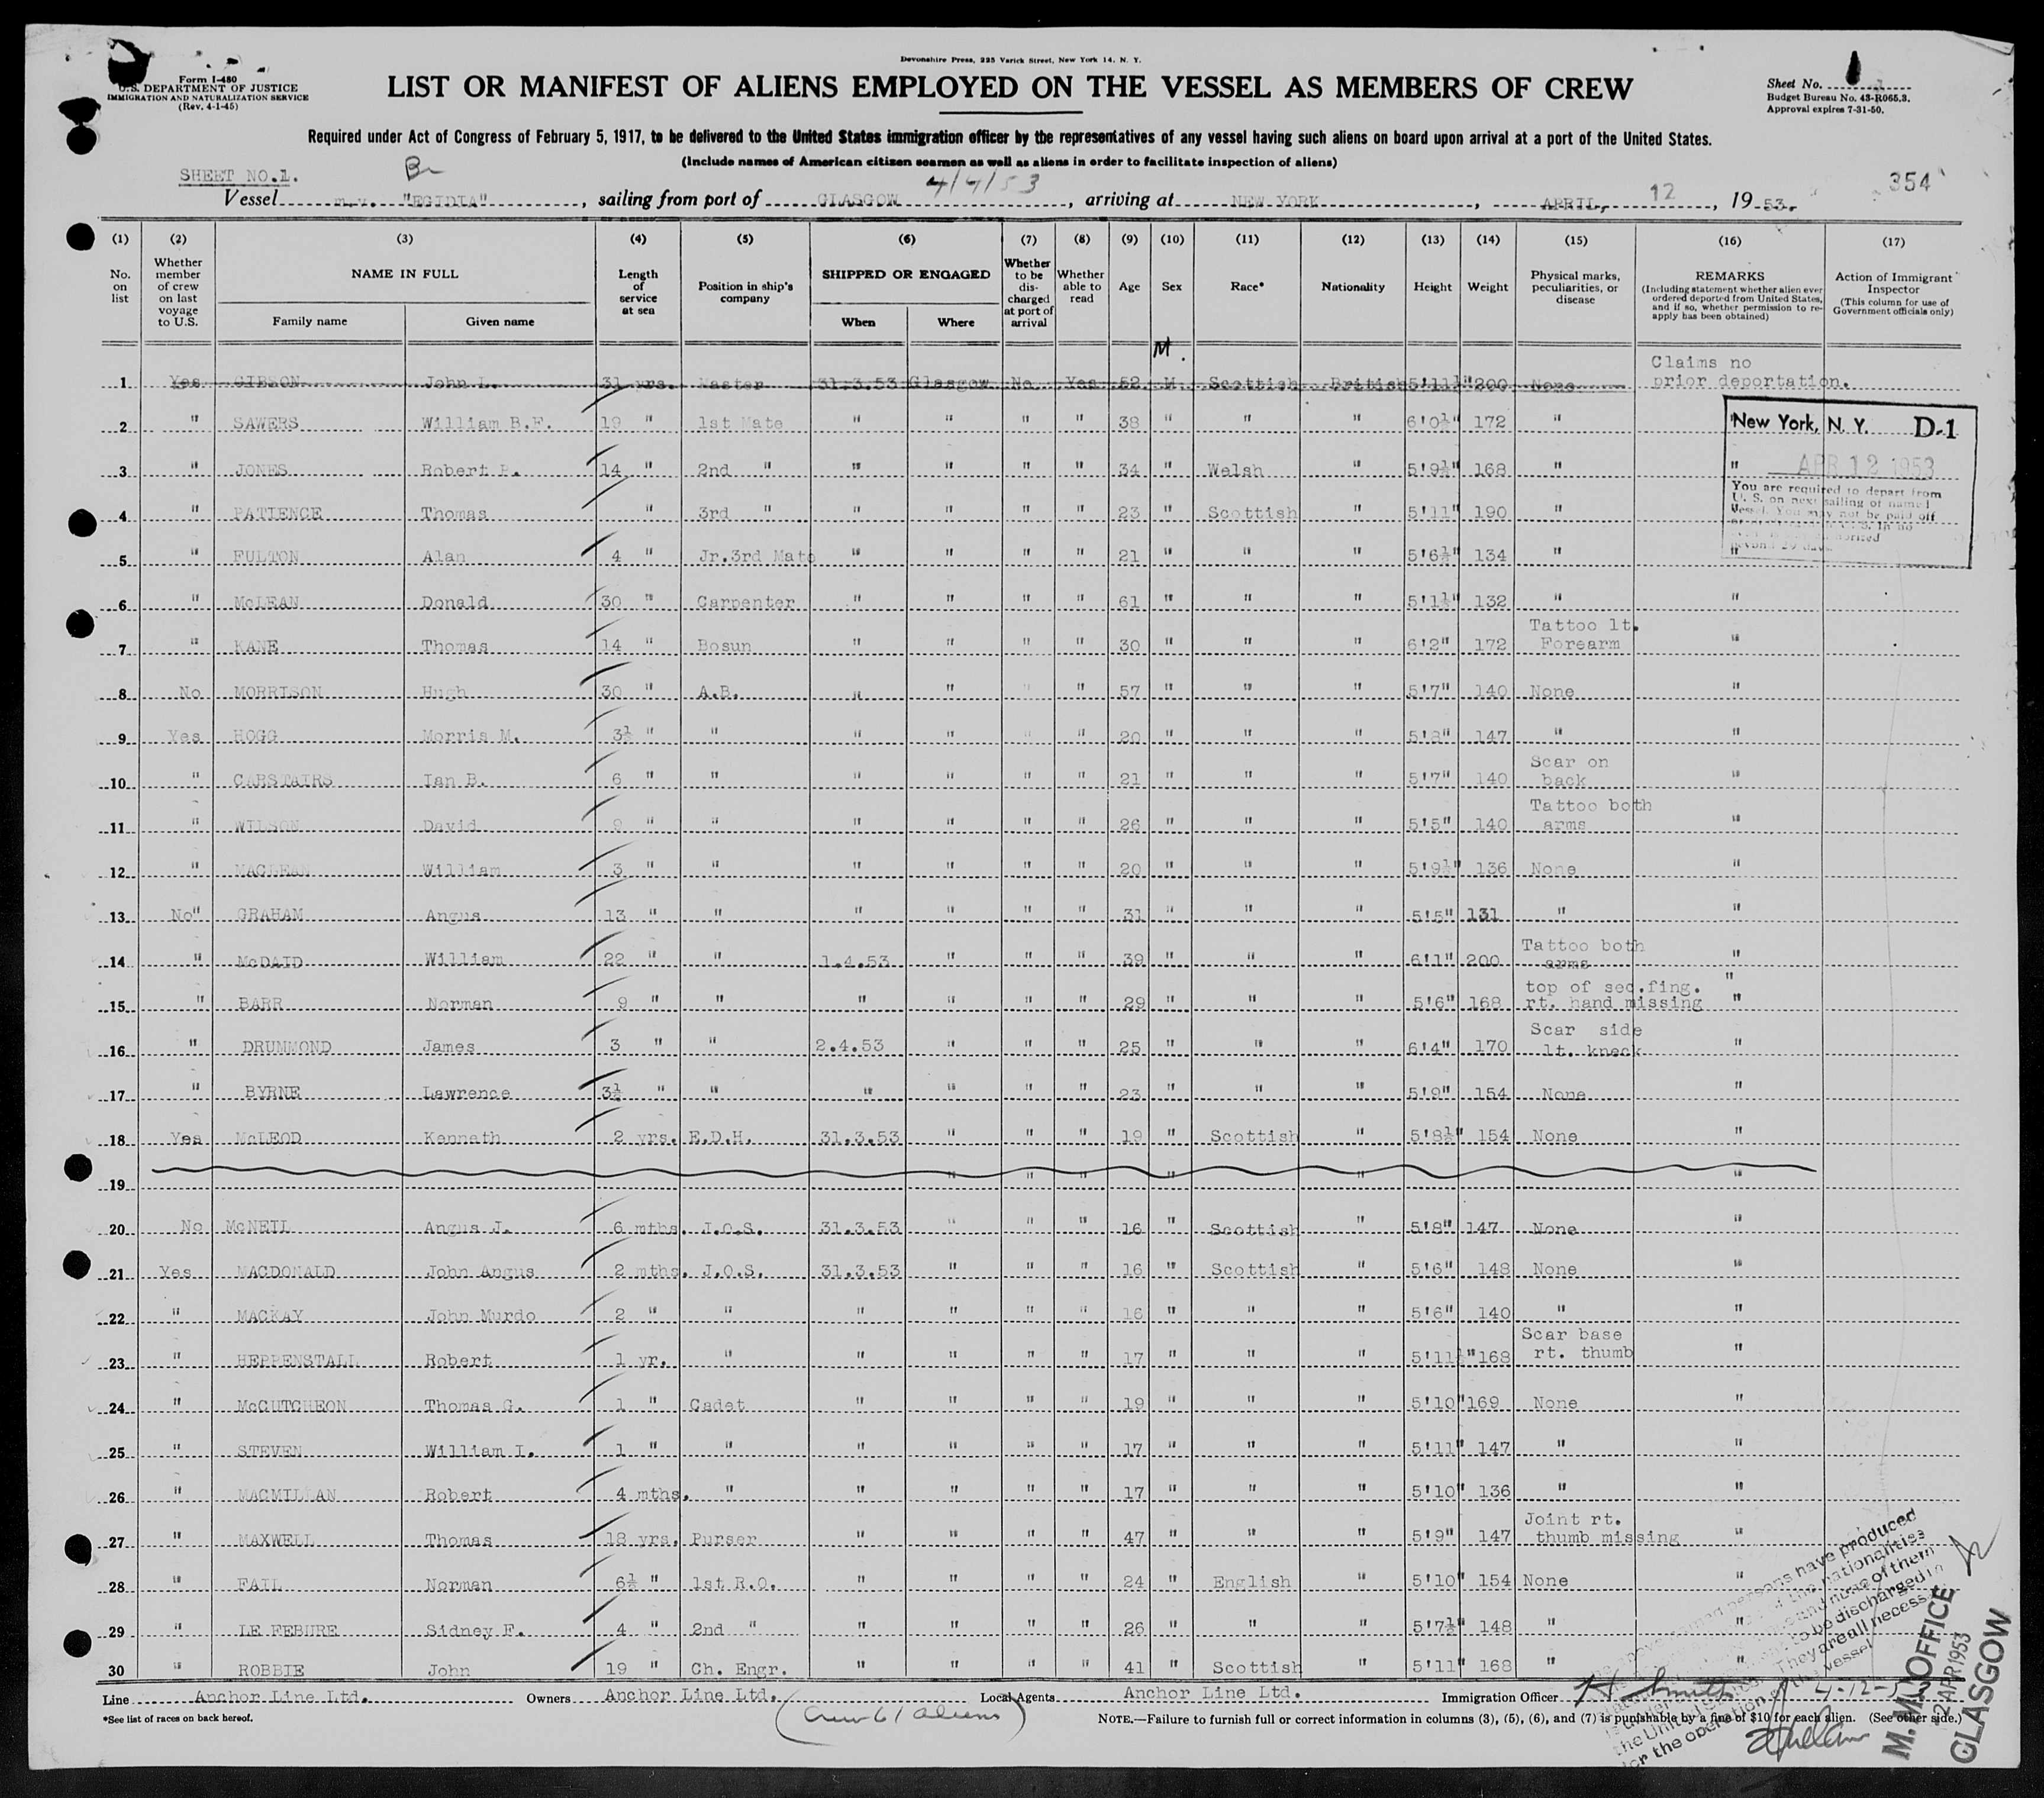 Form I-480
U.S. DEPARTMENT OF JUSTICE
IMMIGRATION AND NATURALIZATION SERVICE
(Rev. 4-1-45)
Devonshire Press, 225 Varick Street, New York 14, N. Y.
LIST OR MANIFEST OF ALIENS EMPLOYED ON THE VESSEL AS MEMBERS OF CREW
Sheet No.
Budget Bureau No. 43-R065.3.
Approval expires 7-31-50.
Required under Act of Congress of February 5, 1917, to be delivered to the United States immigration officer by the representatives of any vessel having such aliens on board upon arrival at a port of the United States.
(Include names of American citizen seamen as well as aliens in order to facilitate inspection of aliens)
SHEET NO.1. Br 4/4/53 354
Vessel m.v. "EGIDIA", sailing from port of GLASGOW, arriving at NEW YORK, APRIL, 12, 1953.
(1) (2) (3) (4) (5) (6) (7) (8) (9) (10) (11) (12) (13) (14) (15) (16) (17)
No. on list
Whether member of crew on last voyage to U.S.
NAME IN FULL
Family name
Given name
Length of service at sea
Position in ship's company
SHIPPED OR ENGAGED
When
Where
Whether to be discharged at port of arrival
Whether able to read
Age
Sex
Race*
Nationality
Height
Weight
Physical marks, peculiarities, or disease
REMARKS
(Including statement whether alien ever ordered deported from United States, and if so, whether permission to reapply has been obtained)
Action of Immigrant Inspector
(This column for use of Government officials only)
M.
1 Yes GIBSON John L. 31 yrs. Master 31.3.53 Glasgow No Yes 52 M. Scottish British 5'11½" 200 None Claims no prior deportation.
2 " SAWERS William B.F. 19 " 1st Mate " " " " 38 " " " 6'0½" 172 "
3 " JONES Robert 14 " 2nd " " " " " 34 " Welsh " 5'9½" 168 " "
4 " PATIENCE Thomas " 3rd " " " " " 23 " Scottish " 5'11" 190 "
5 " FULTON Alan 4 " Jr.3rd Mate " " " " 21 " " " 5'6½" 134 " "
6 " McLEAN Donald 30 " Carpenter " " " " 61 " " " 5'1½" 132 " "
7 " KANE Thomas 14 " Bosun " " " " 30 " " " 6'2" 172 Tattoo lt. Forearm "
8 No MORRISON Hugh 30 " A.B. " " " " 57 " " " 5'7" 140 None "
9 Yes HOGG Morris M. 3½ " " " " " " 20 " " " 5'8" 147 " "
10 " CARSTAIRS Ian B. 6 " " " " " " 21 " " " 5'7" 140 Scar on back "
11 " WILSON David 9 " " " " " " 26 " " " 5'5" 140 Tattoo both arms "
12 " MACLEAN William 3 " " " " " " 20 " " " 5'9½" 136 None "
13 No" GRAHAM Angus 13 " " " " " " 31 " " " 5'5" 131 " "
14 " McDAID William 22 " " 1.4.53 " " " 39 " " " 6'1" 200 Tattoo both arms "
15 " BARR Norman 9 " " " " " " 29 " " " 5'6" 168 top of sec.fing. rt. hand missing " "
16 " DRUMMOND James 3 " " 2.4.53 " " " 25 " " " 6'4" 170 Scar side lt. kneck "
17 " BYRNE Lawrence 3½ " " " " " " 23 " " " 5'9" 154 None "
18 Yes McLEOD Kenneth 2 yrs. E.D.H. 31.3.53 " " " 19 " Scottish " 5'8½" 154 None "
19 " " " " " "
20 No McNEIL Angus J. 6 mths. J.O.S. 31.3.53 " " " 16 " Scottish " 5'8" 147 None "
21 Yes MACDONALD John Angus 2 mths. J.O.S. 31.3.53 " " " 16 " Scottish " 5'6" 148 None "
22 " MACKAY John Murdo 2 " " " " " " 16 " " " 5'6" 140 " "
23 " HEPPENSTALL Robert 1 yr. " " " " " 17 " " " 5'11½" 168 Scar base rt. thumb "
24 " McCUTCHEON Thomas G. 1 " Cadet " " " " 19 " " " 5'10" 169 None "
25 " STEVEN William I. 1 " " " " " " 17 " " " 5'11" 147 " "
26 " MACMILLAN Robert 4 mths. " " " " " 17 " " " 5'10" 136 " "
27 " MAXWELL Thomas 18 yrs. Purser " " " " 47 " " " 5'9" 147 Joint rt. thumb missing "
28 " FAIL Norman 6½ " 1st R.O. " " " " 24 " English " 5'10" 154 None "
29 " LE FEBURE Sidney F. 4 " 2nd " " " " " 26 " " " 5'7½" 148 " "
30 " ROBBIE John 19 " Ch. Engr. " " " " 41 " Scottish " 5'11" 168 " "
New York, N. Y. D-1
APR 12 1953
You are required to depart from
U. S. on next sailing of named
vessel. You may not be paid off
Line Anchor Line Ltd. Owners Anchor Line Ltd. Local Agents Anchor Line Ltd. Immigration Officer H. Smith 4-12-53
*See list of races on back hereof.
(Crew 61 aliens)
NOTE.—Failure to furnish full or correct information in columns (3), (5), (6), and (7) is punishable by a fine of $10 for each alien. (See other side.)
persons have produced
the nationalities
and none of them
to be discharged in
the United States. They are all necess
for the operation of the vessel
M.M.OFFICE
2 APR 1953
GLASGOW